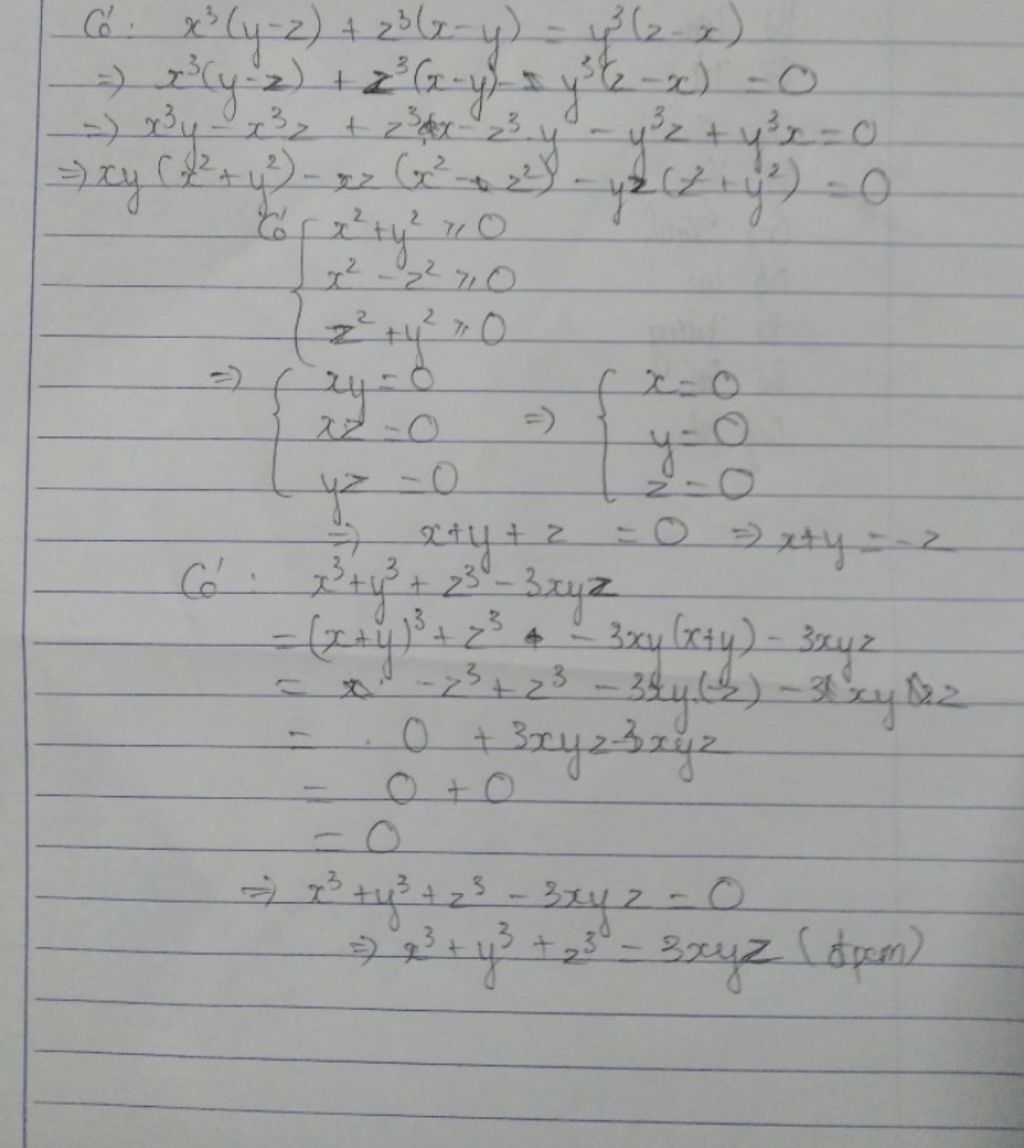 Có: x³(y-z) + z³(x-y) = y³(z-x)
=> x³(y-z) + z³(x-y) - y³(z-x) = 0
=> x³y - x³z + z³x - z³.y - y³z + y³x = 0
=> xy(x²+y²) - xz(x² - z²) - yz(z²+y²) = 0
Có { x²+y² ≥ 0
x² - z² ≥ 0
z² + y² ≥ 0
=> { xy = 0 => { x = 0
xz = 0 y = 0
yz = 0 z = 0
=> x+y+z = 0 => x+y = -z
Có: x³+y³+z³-3xyz
= (x+y)³+z³ - 3xy(x+y) - 3xyz
= -z³+z³ - 3xy(-z) - 3xyz
= 0 + 3xyz-3xyz
= 0 + 0
= 0
=> x³+y³+z³ - 3xyz = 0
=> x³+y³+z³ = 3xyz (đpcm)